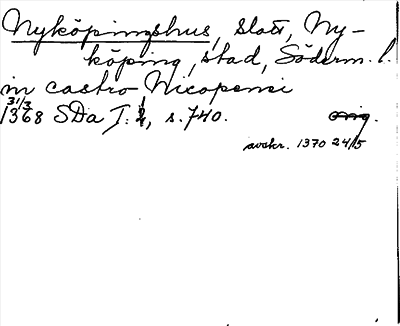 Nyköpingshus, slott, Ny-
köping, stad, Söderm. l.
in castro Nicopensi
31/3
1368 SDa I: 1, s. 740. orig.
avskr. 1370 24/5